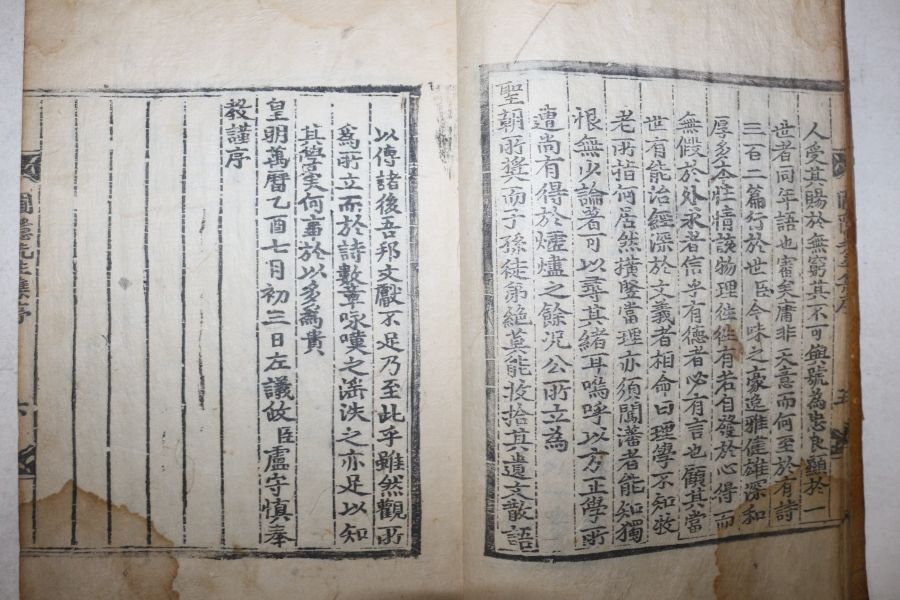 人受其賜於無窮其不可與號為忠良顯於一
世者同年語也審矣庸非天意而何至於有詩
三百二篇行於世臣今味之豪逸雅健雄深和
厚多本性情該物理往往有若自發於心得而
無假於外求者信乎有德者必有言也顧其當
世有能治經深於文義者相命曰理學不知牧
老所指何居然橫竪當理亦須闖藩者能知獨
恨無少論著可以尋其緒耳嗚呼以方正學所
遭尚有得於煙燼之餘況公所立為
聖朝所奬而子孫徒弟絶莫能收拾其遺文散語
以傳諸後吾邦文獻不足乃至此乎雖然觀所
為所立而於詩數章咏嘆之滛泆之亦足以知
其學矣何啻於以多為貴
皇明萬曆乙酉七月初三日左議政臣盧守愼奉
敎謹序
圃隱先生集序
六